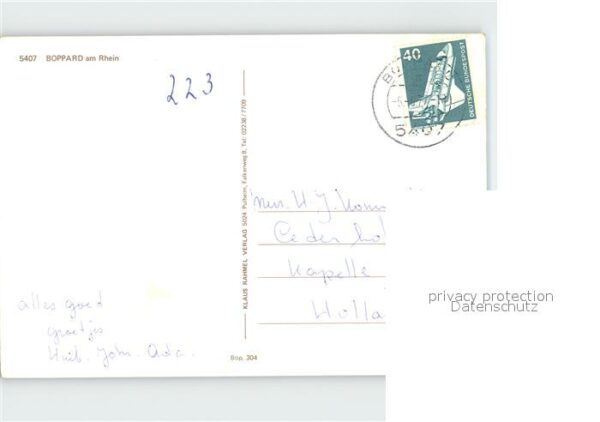 5407 BOPPARD am Rhein
223
40
DEUTSCHE BUNDESPOST
5407
KLAUS RAHMEL VERLAG 5024 Pulheim, Falkenweg 8, Tel. 02238/7709
H. J.
Ceder
Kapelle
Holla
alles goed
groetjes
Huib. Joh. Ada.
Bop. 304
privacy protection
Datenschutz